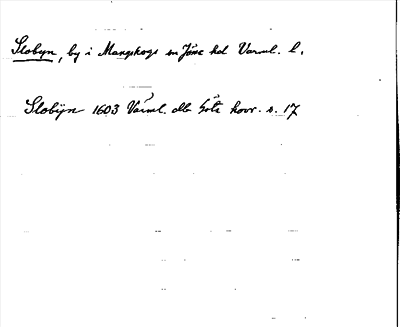 Slobyn, by i Mangskogs sn Jösse hd Värml. l.
Slobÿn 1603 Värml. o Göta handl. s. 17